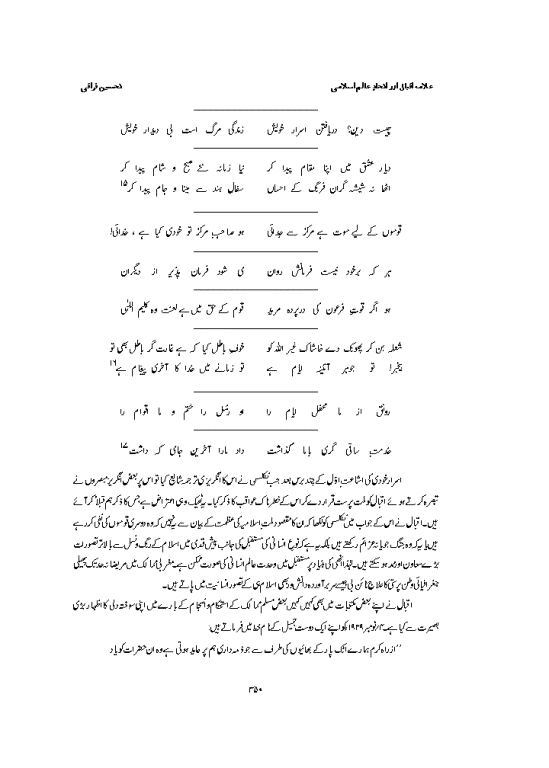 علامہ اقبال اور اتحادِ عالمِ اسلامی
تحسین فراقی
چیست دین؟ دریافتن اسرارِ خویش زندگی مرگ است بی دیدارِ خویش
دیارِ عشق میں اپنا مقام پیدا کر نیا زمانہ نئے صبح و شام پیدا کر
اٹھا نہ شیشہ گرانِ فرنگ کے احساں سفالِ ہند سے مینا و جام پیدا کر۱۵
قوموں کے لیے موت ہے مرکز سے جدائی ہو صاحبِ مرکز تو خودی کیا ہے ، خدائی!
ہر کہ برخود نیست فرمانش رواں می شود فرماں پذیر از دیگراں
ہو اگر قوتِ فرعون کی درپردہ مرید قوم کے حق میں ہے لعنت وہ کلیم اللّٰہی
شعلہ بن کر پھونک دے خاشاکِ غیر اللہ کو خوفِ باطل کیا کہ ہے غارت گرِ باطل بھی تو
بیخبر! تو جوہرِ آئینۂ ایام ہے تو زمانے میں خدا کا آخری پیغام ہے۱۶
رونق از ما محفلِ ایام را او رسل را ختم و ما اقوام را
خدمتِ ساقی گری با ما گذاشت داد ما را آخریں جامی کہ داشت۱۷
اسرارِ خودی کی اشاعتِ اوّل کے چند برس بعد جب نکلسن نے اس کا انگریزی ترجمہ شائع کیا تو اس پر بعض انگریز مبصروں نے
تبصرہ کرتے ہوئے اقبال کو ملت پرست قرار دے کر اس کے خطرناک عواقب کا ذکر کیا۔ یہ ٹھیک وہی اعتراض ہے جس کا ذکر ہم قبلاً کر آئے
ہیں۔ اقبال نے اس کے جواب میں نکلسن کو لکھا کہ ان کا مقصود ملتِ اسلامیہ کی عظمت کے بیان سے یہ نہیں کہ وہ دوسری قوموں کی نفی کر رہے
ہیں یا یہ کہ وہ جنگ جویانہ عزائم رکھتے ہیں بلکہ یہ ہے کہ نوعِ انسانی کی مستقبل کی جانب پیش قدمی میں اسلام کے رنگ و نسل سے بالاتر تصورات
بڑے معاون اور ممد ہو سکتے ہیں۔ لہٰذا انھی کی بنیاد پر مستقبل میں وحدتِ عالمِ انسانی کی صورت ممکن ہے۔ مغربی ممالک میں مریضانہ حد تک پھیلی
جغرافیائی وطن پرستی کا علاج ٹائن بی جیسے سربرآوردہ دانش ور بھی اسلام ہی کے تصورِ انسانیت میں پاتے ہیں۔
اقبال نے اپنے بعض مکتوبات میں بھی کہیں کہیں بعض مسلم ممالک کے استحکام و انجام کے بارے میں اپنی سوختہ دلی کا اظہار بڑی
بصیرت سے کیا ہے۔ ۴ نومبر ۱۹۲۹ کو اپنے ایک دوست جمیل کے نام خط میں فرماتے ہیں:
''از راہِ کرم ہمارے اٹک پار کے بھائیوں کی طرف سے جو ذمہ داری ہم پر عاید ہوتی ہے وہ ان حضرات کو یاد
۳۵۰